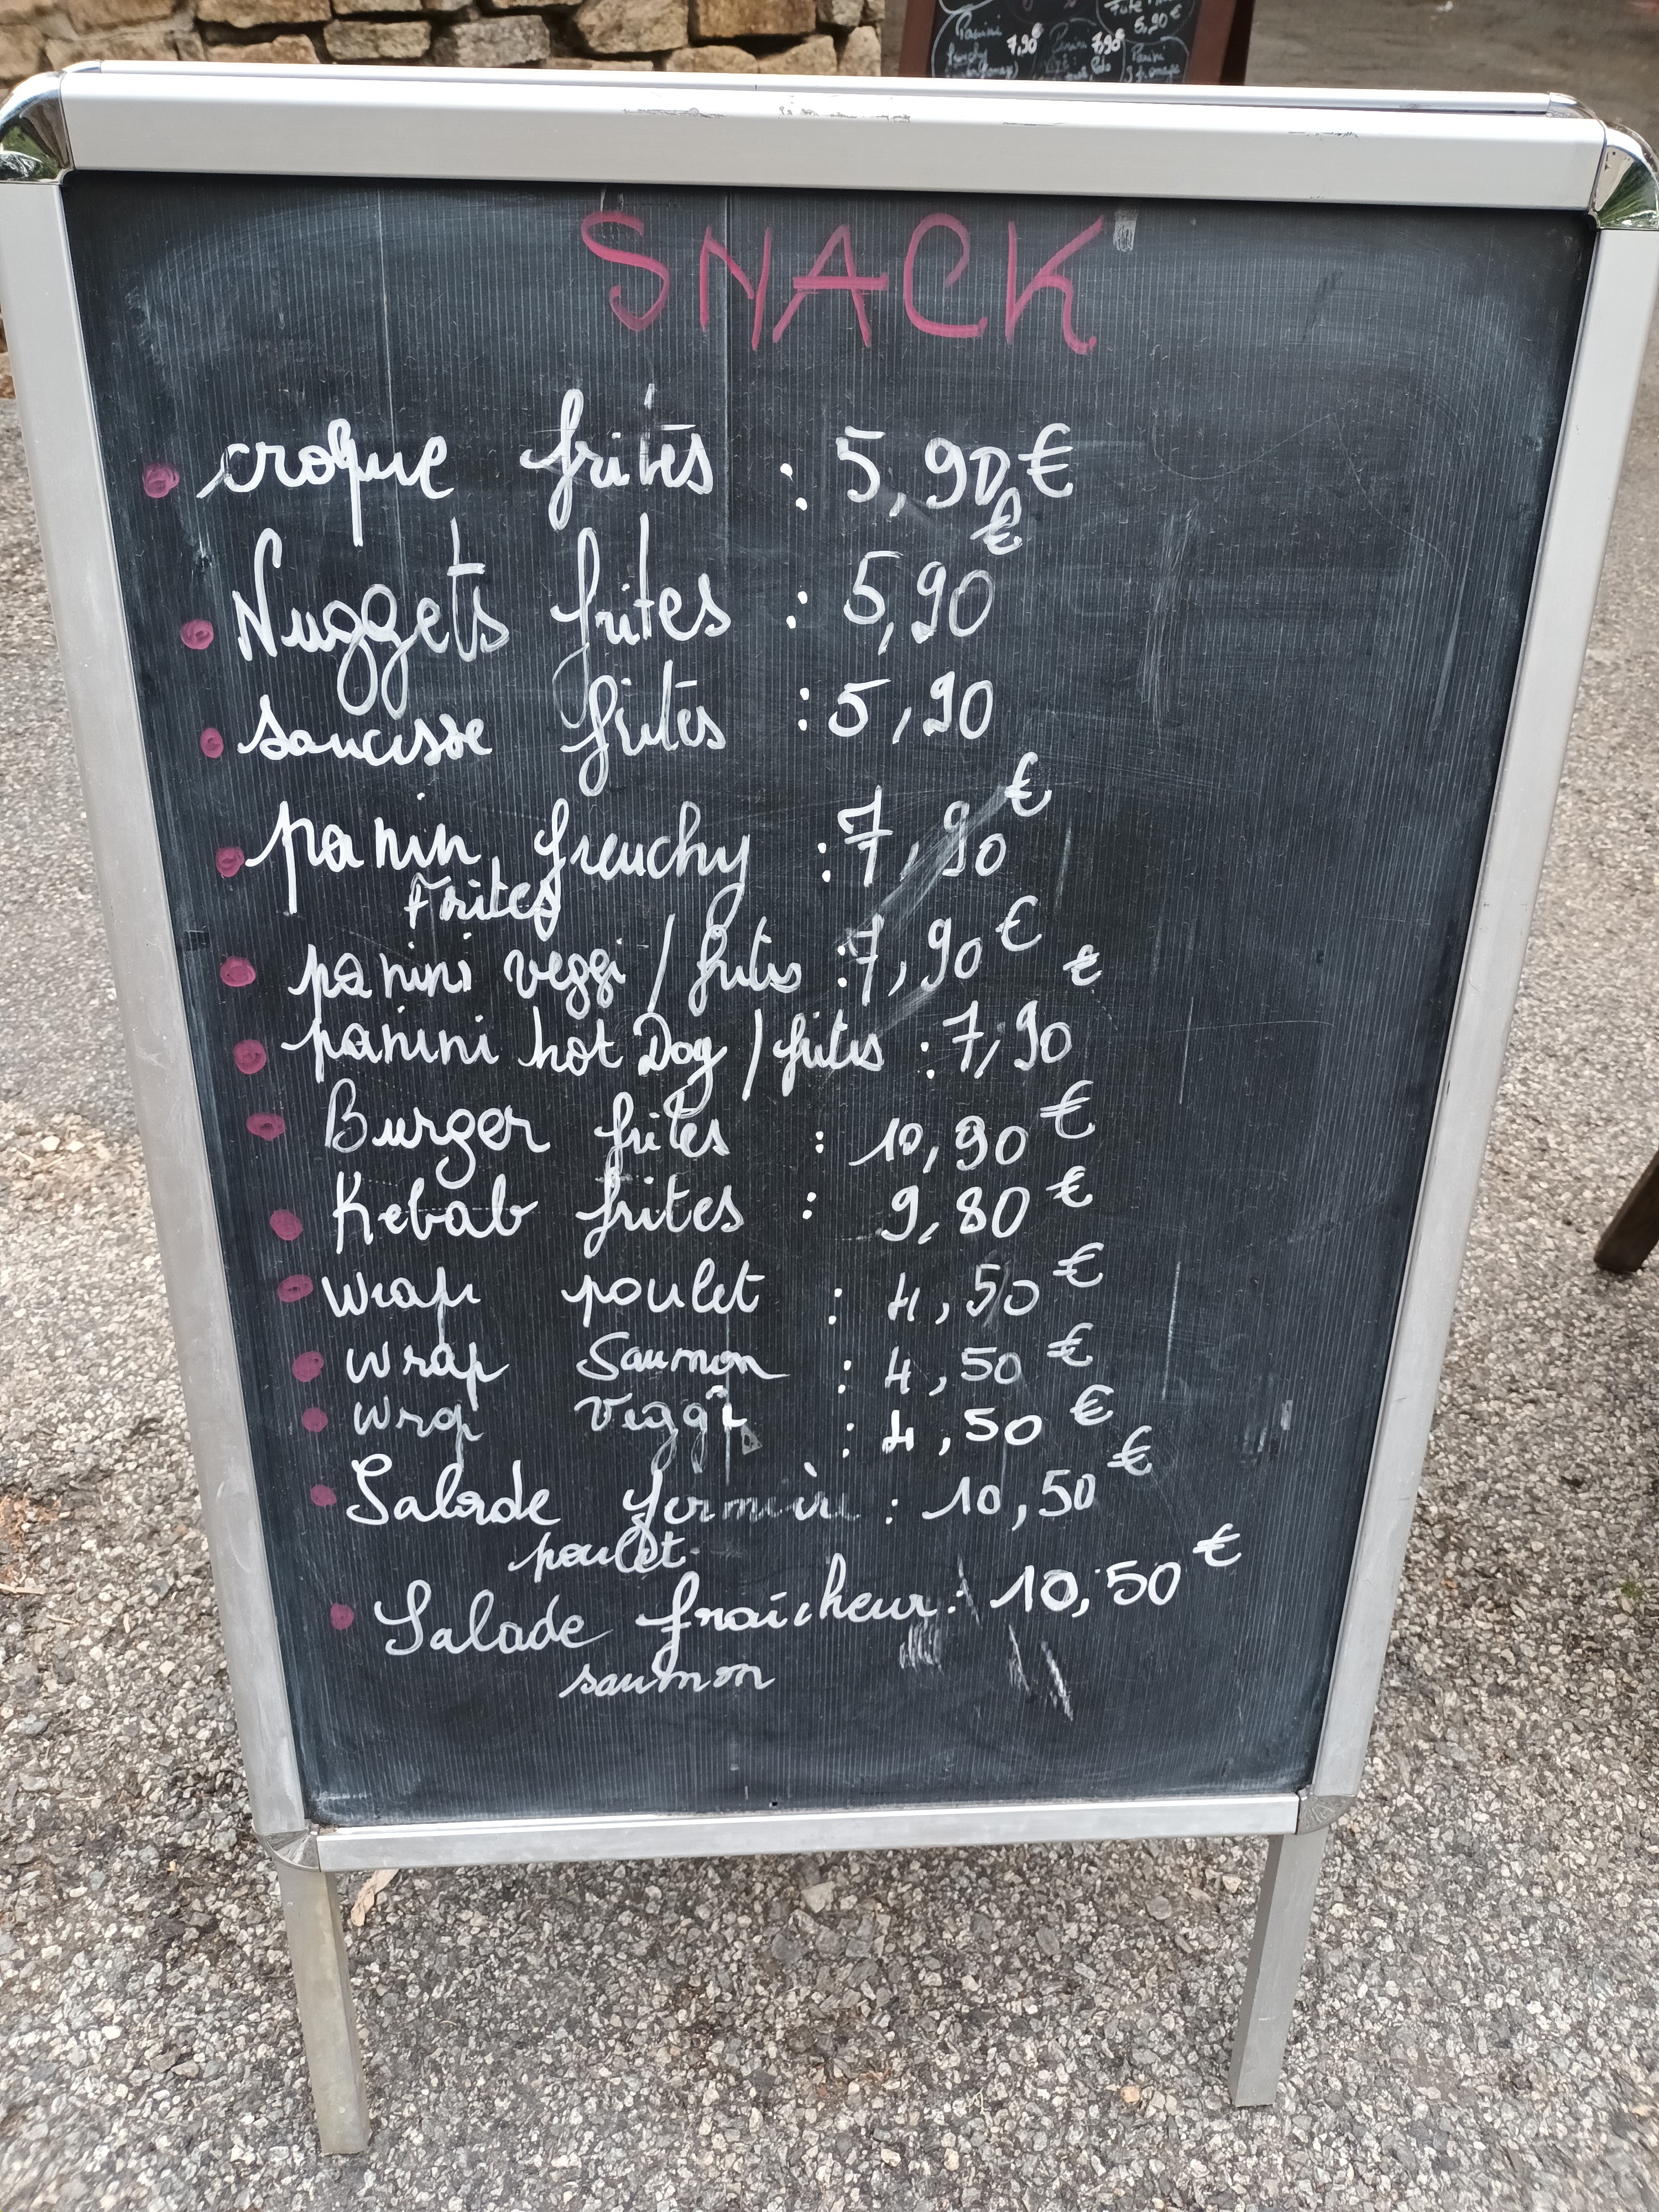 Panini
7,90€
7,90€
5,90€
Panini
SNACK
croque frites : 5,90€
Nuggets frites : 5,90€
saucisse frites : 5,90
panini frenchy : 7,90€
Frites
panini veggi / frites : 7,90€
panini hot Dog / frites : 7,90€
Burger frites : 10,90€
Kebab frites : 9,80€
wrap poulet : 4,50€
wrap Saumon : 4,50€
wrap veggi : 4,50€
Salade fermière : 10,50€
poulet
Salade fraîcheur : 10,50€
saumon